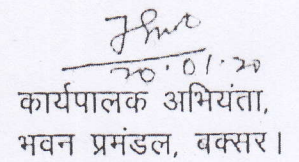 20.01.20
कार्यपालक अभियंता,
भवन प्रमंडल, बक्सर।